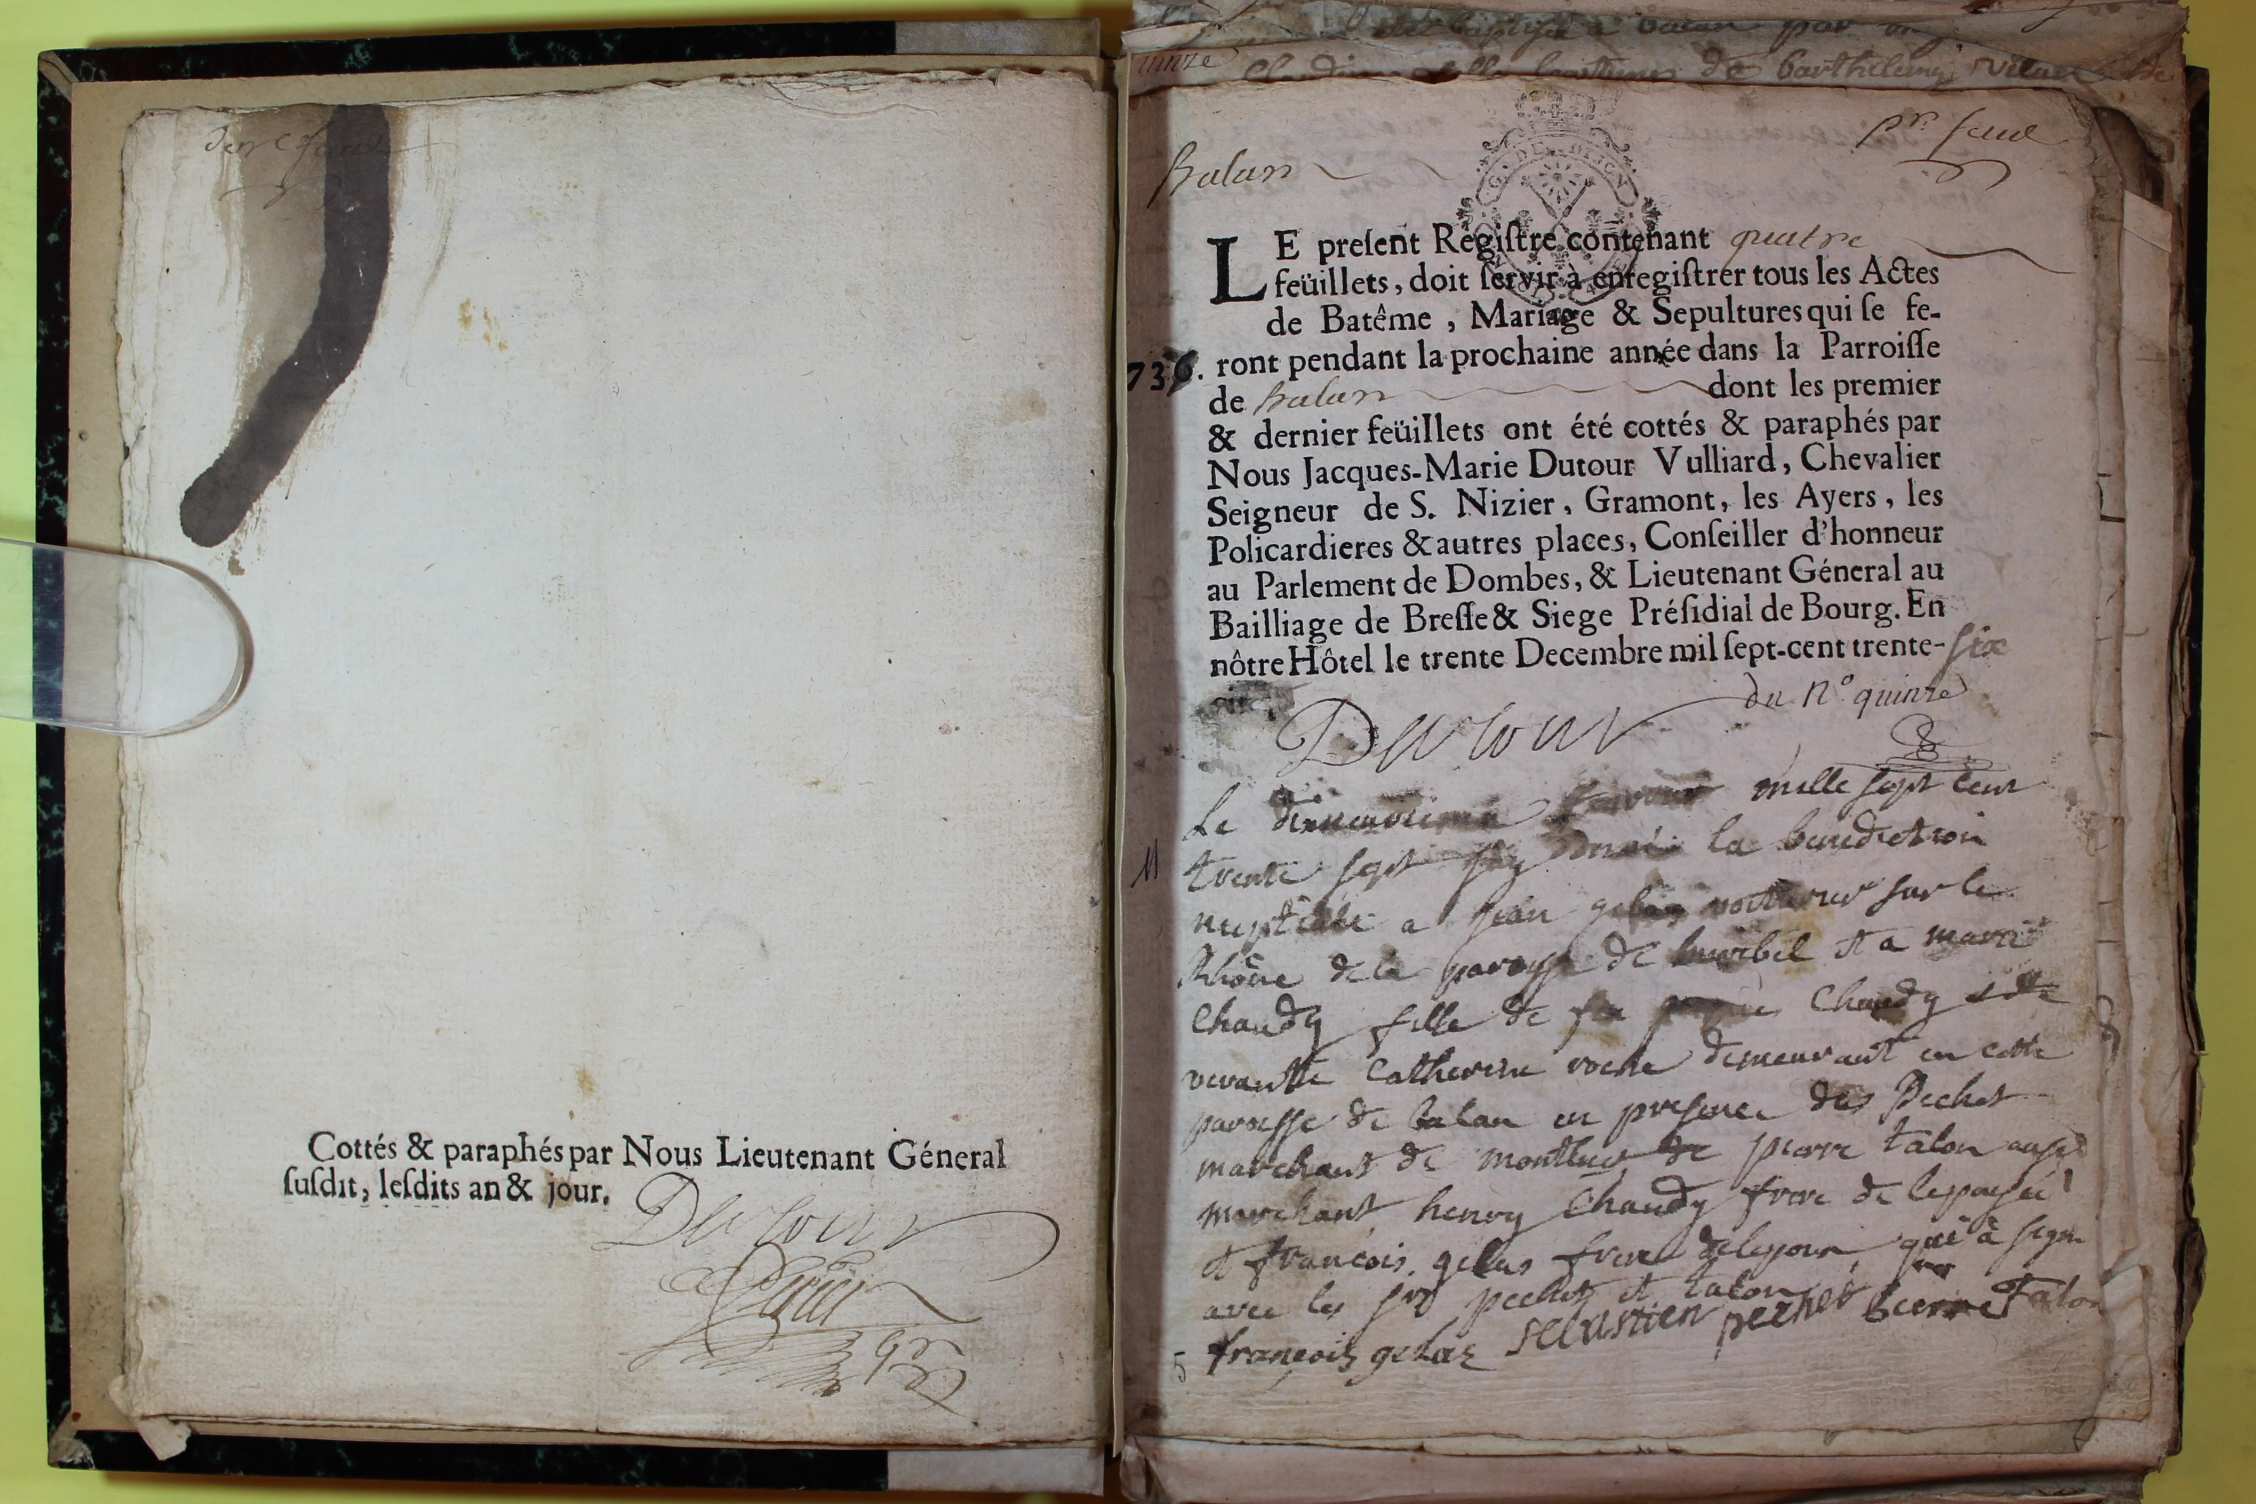 Cottés & paraphés par Nous Lieutenant Géneral
ſuſdit, leſdits an & jour.
Dutour
quinze
de barthelemy
Balan
pr feuil
LE preſent Regiſtre contenant quatre
feüillets, doit ſervir à enregiſtrer tous les Actes
de Batême, Mariage & Sepultures qui ſe fe-
ront pendant la prochaine année dans la Parroiſſe
de Balan dont les premier
& dernier feüillets ont été cottés & paraphés par
Nous Jacques-Marie Dutour Vulliard, Chevalier
Seigneur de S. Nizier, Gramont, les Ayers, les
Policardieres & autres places, Conſeiller d'honneur
au Parlement de Dombes, & Lieutenant Géneral au
Bailliage de Breſſe & Siege Préſidial de Bourg. En
nôtre Hôtel le trente Decembre mil ſept-cent trente-six
du n° quinze
Dutour
Le mille sept cent
11
trente sept jay donné la benediction
nuptiale a jean gelas voiturier sur le
Rhône de la paroysse de et a marie
chaudy fille de feu chaudy et de
vivante Catherine roche demeurant en cette
paroisse de balan en presence des Pechet
marchant de montluel de pierre talon aussi
marchant henry chaudy frere de lepousée
et françois gelas frere de lepoux qui a signé
avec les srs pechet et talon
françois gelas sebastien pechet pierre talon
5